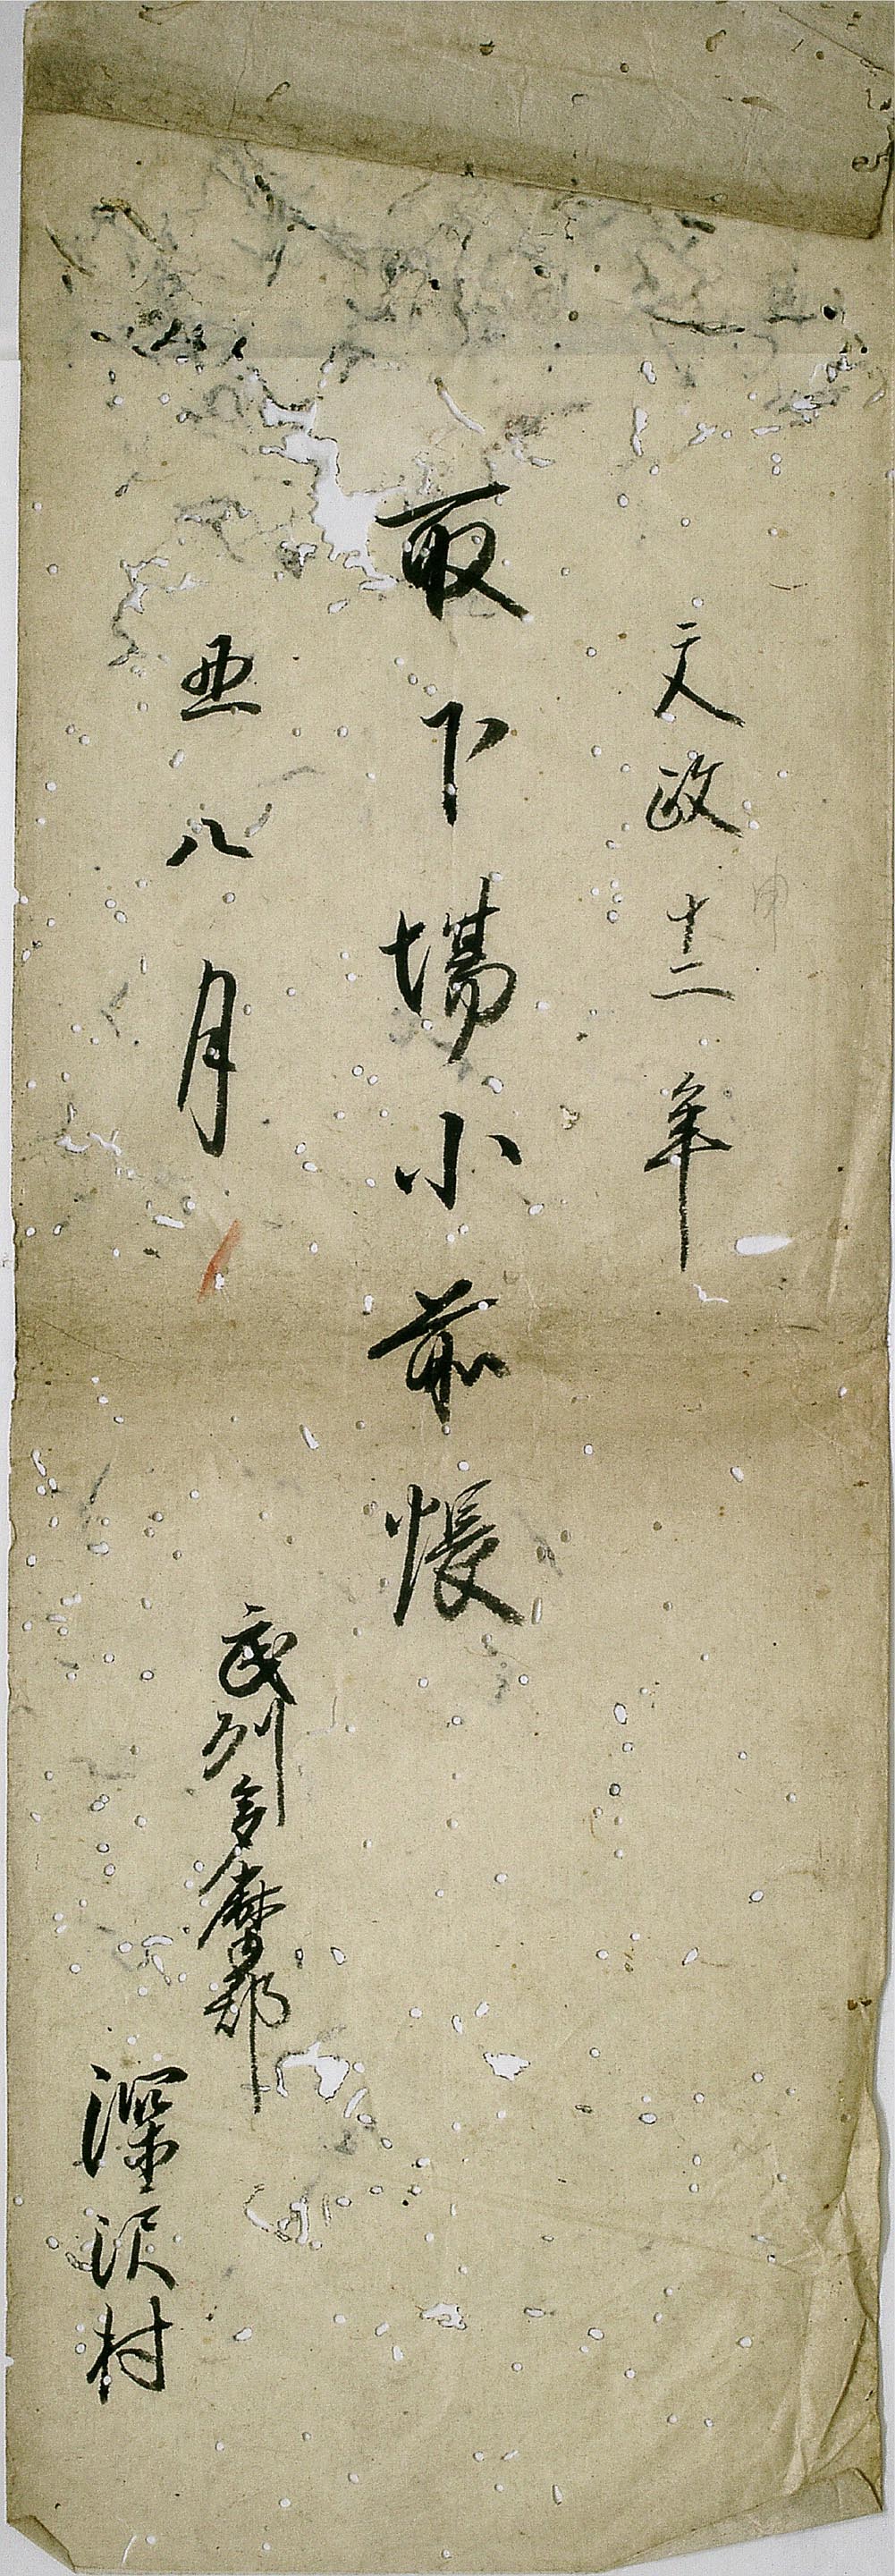 文政十二年
取下場小前帳
丑八月
武州多磨郡
深沢村